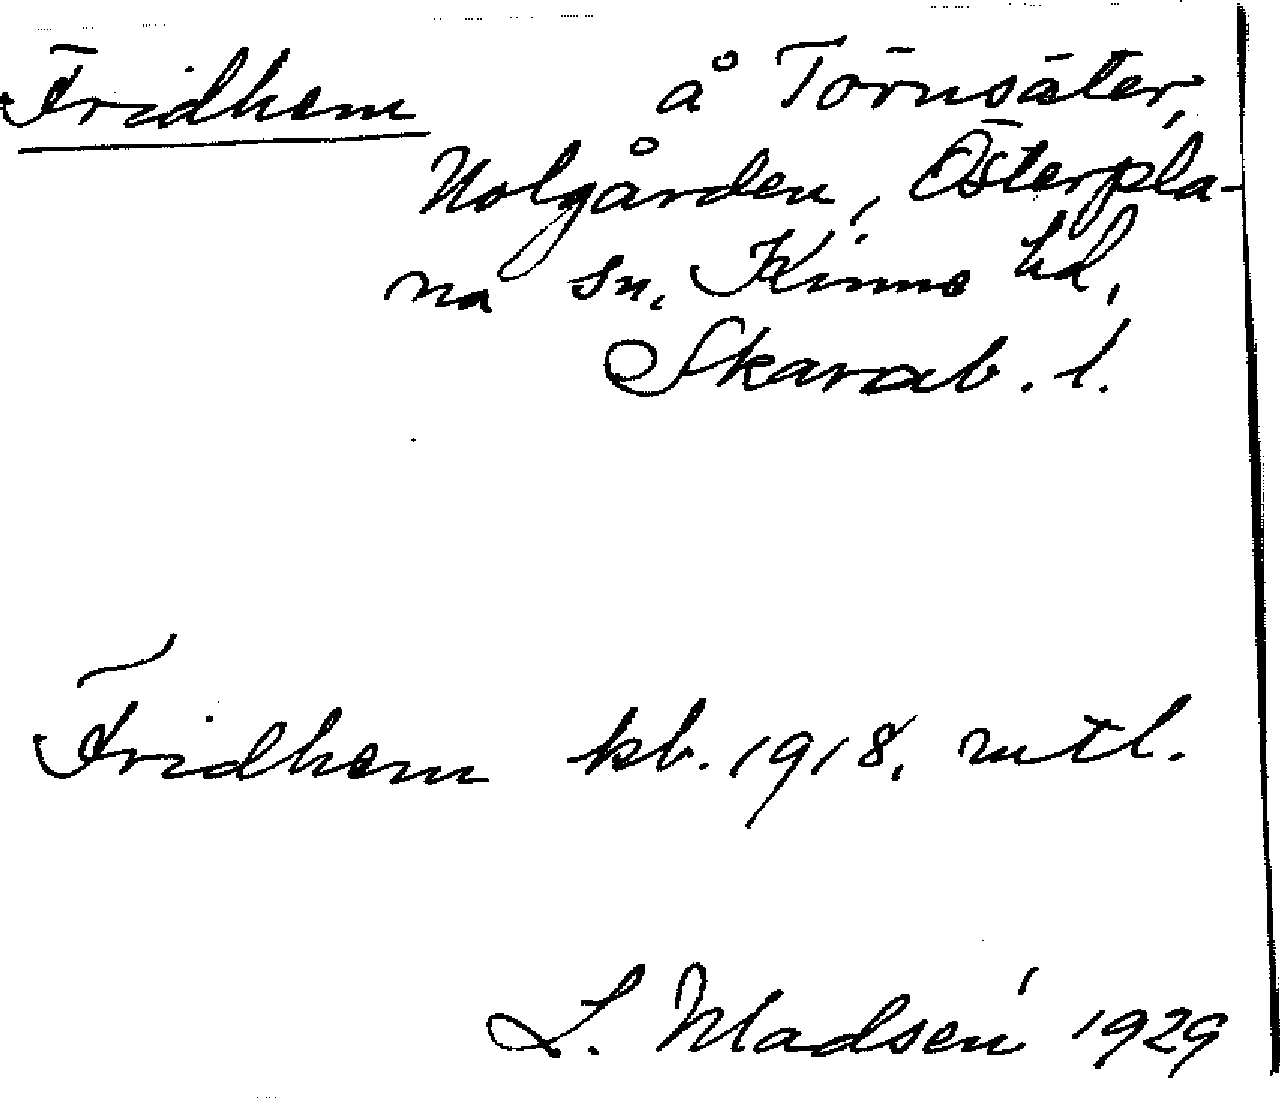 Fridhem å Törnsäter,
Nolgården, Österpla-
na sn, Kinne hd,
Skarab. l.
Fridhem kb. 1918, mtl.
L. Madsén 1929